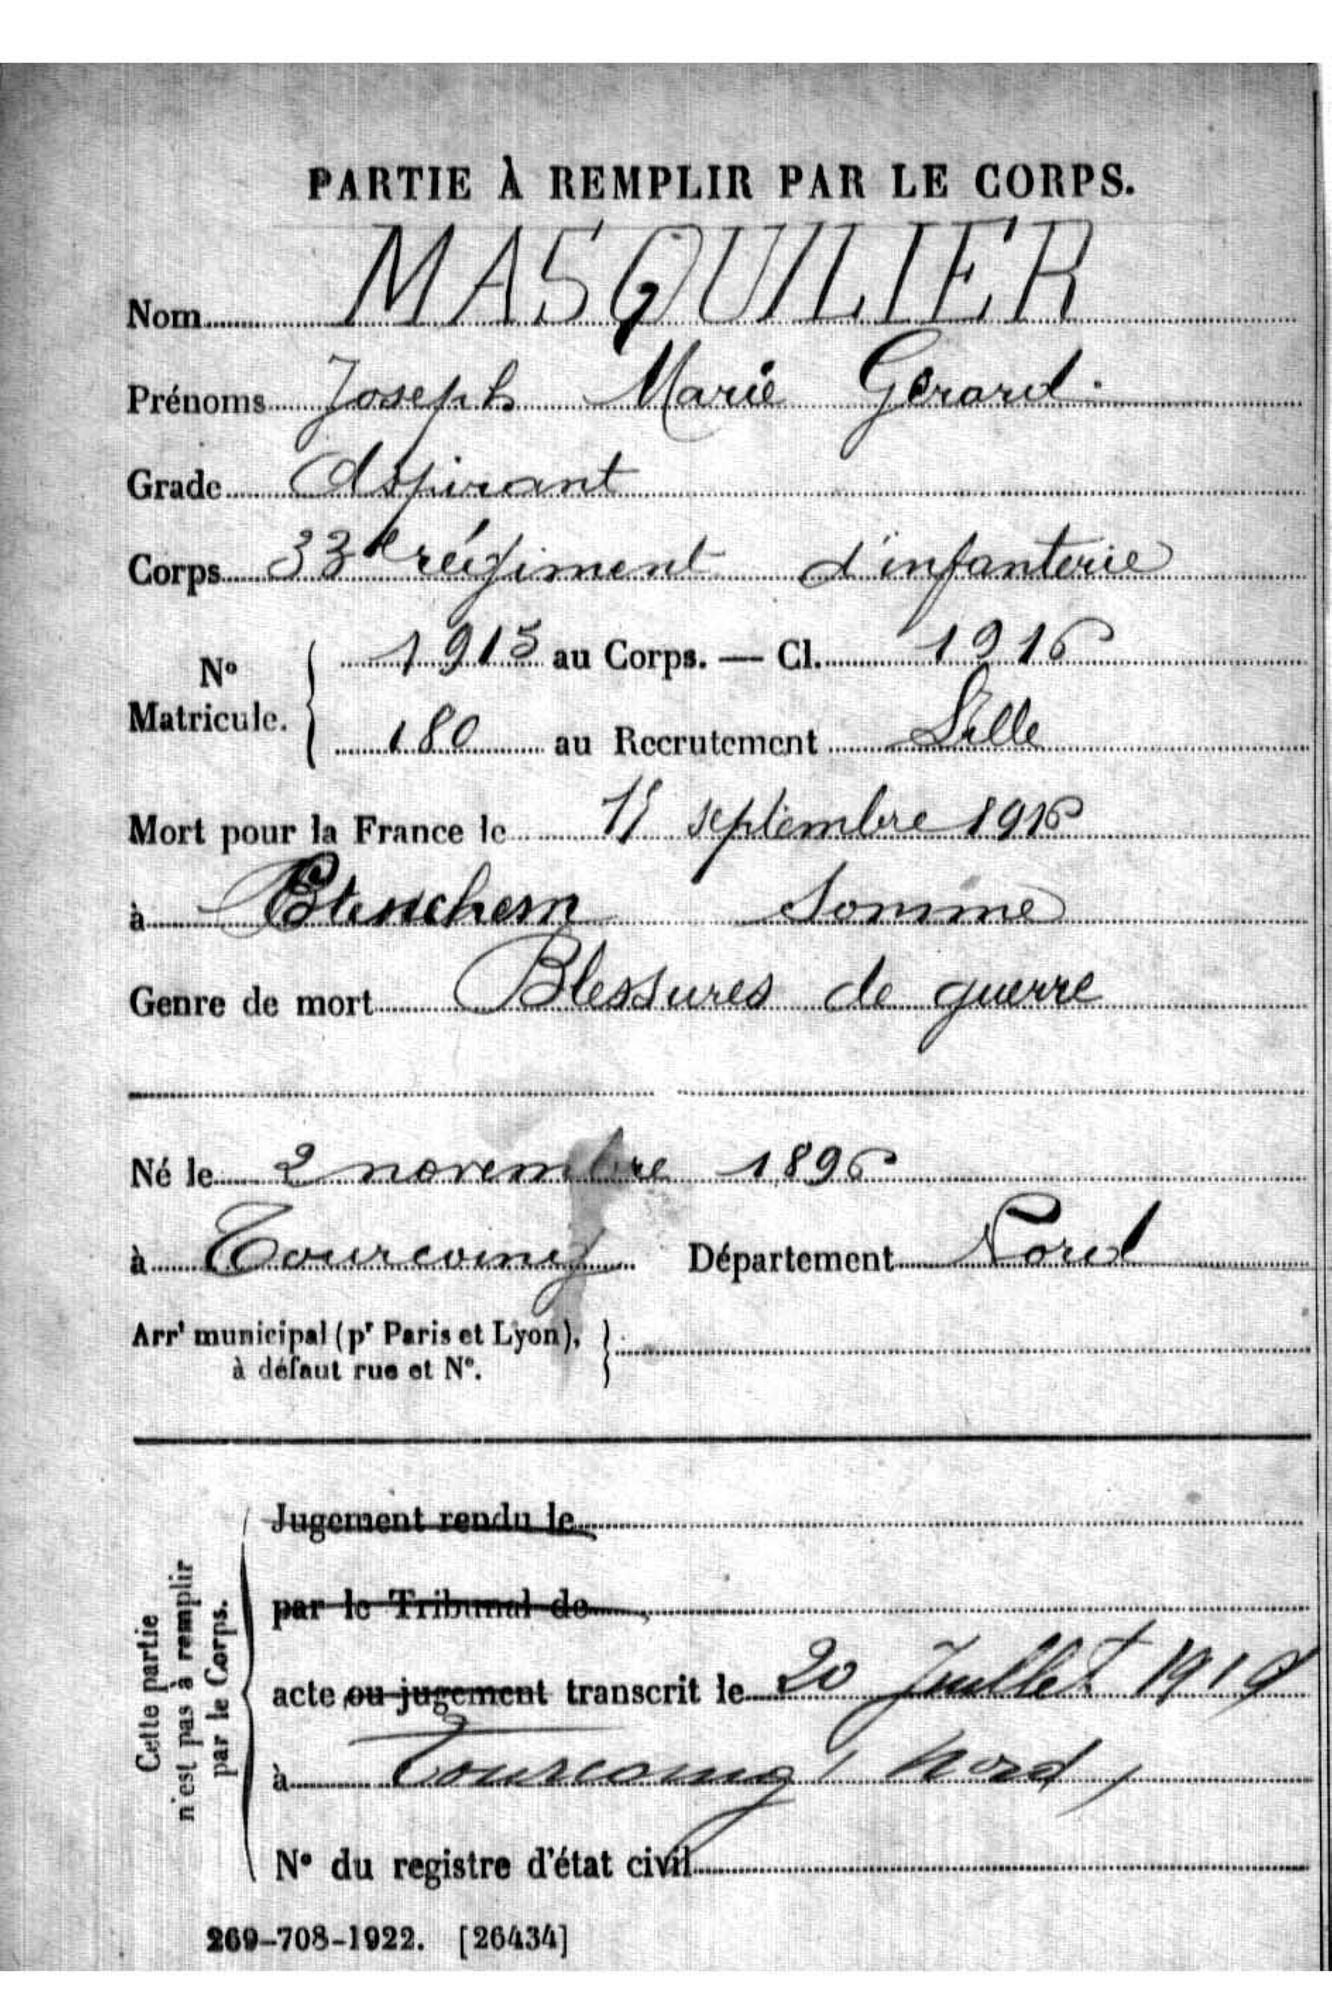 PARTIE À REMPLIR PAR LE CORPS.
Nom MASQUILIER
Prénoms Joseph Marie Gérard.
Grade Aspirant
Corps 33e régiment d'infanterie
N° Matricule. { 1915 au Corps. — Cl. 1916
180 au Recrutement Lille
Mort pour la France le septembre 1916
à Etinehem Somme
Genre de mort Blessures de guerre
Né le 2 novembre 1896
à Tourcoing Département Nord
Arrt municipal (pr Paris et Lyon),
à défaut rue et N°.
Cette partie
n'est pas à remplir
par le Corps.
Jugement rendu le
par le Tribunal de
acte ou jugement transcrit le 20 Juillet 1919
à Tourcoing, Nord,
N° du registre d'état civil
269-708-1922. [26434]